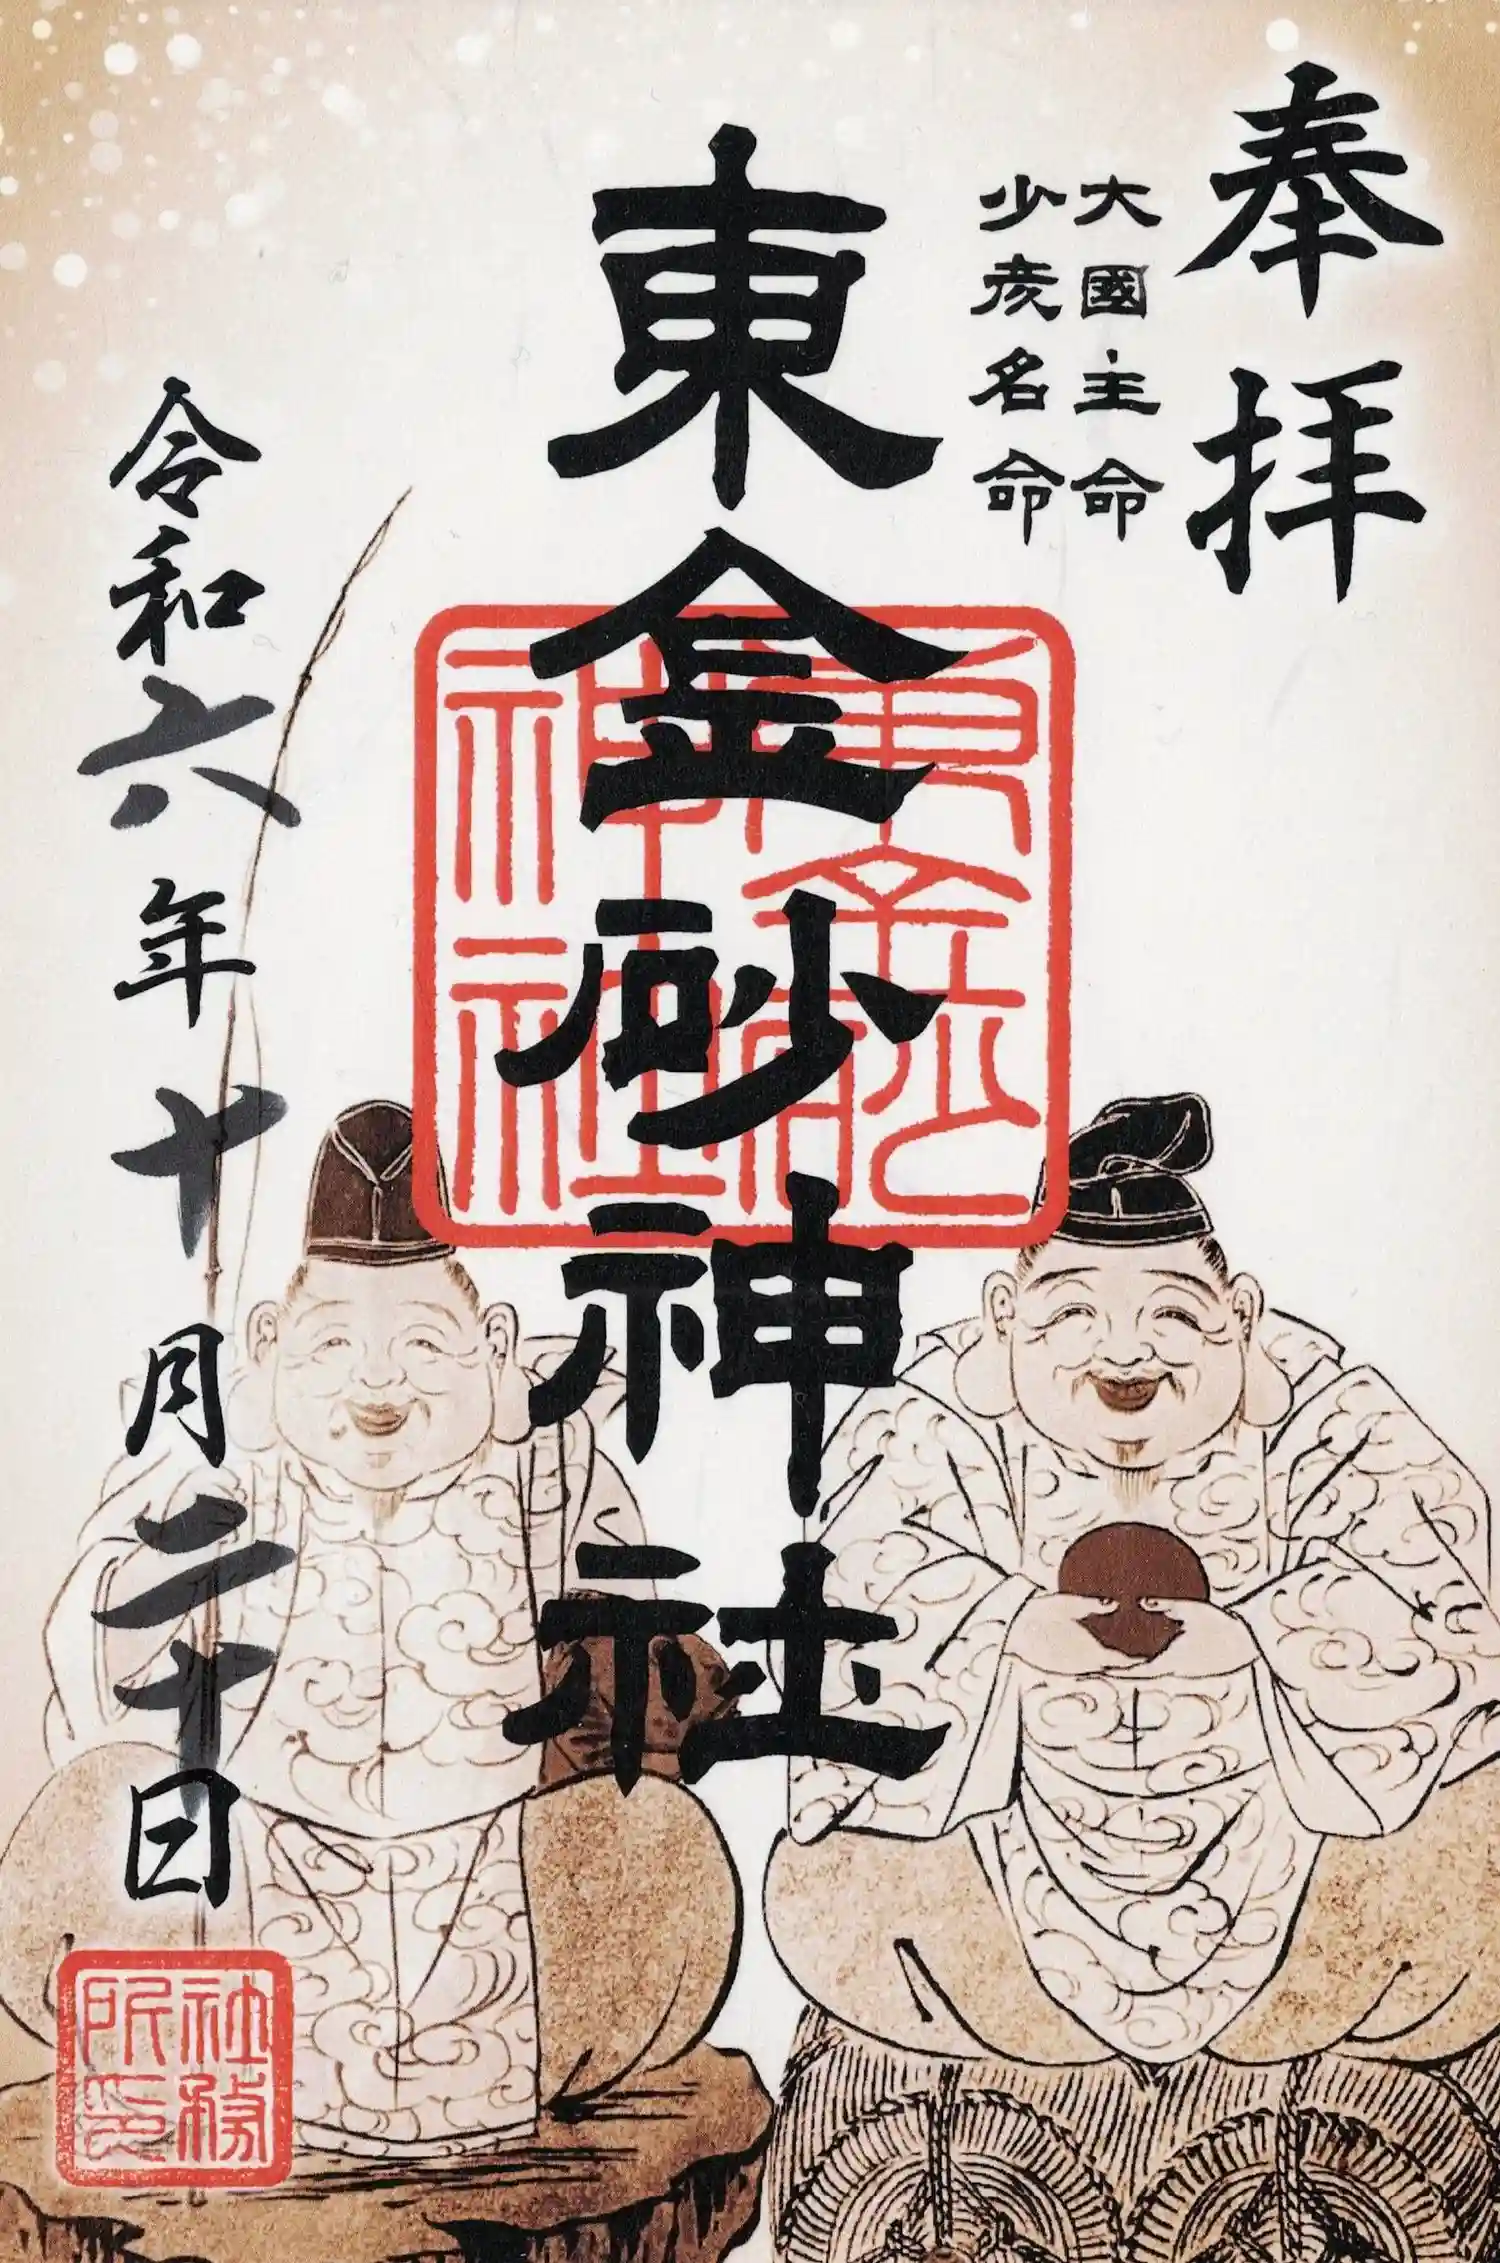 奉拝
大國主命
少彦名命
東金砂神社
令和六年十月二十日
東金砂神社
社務所印